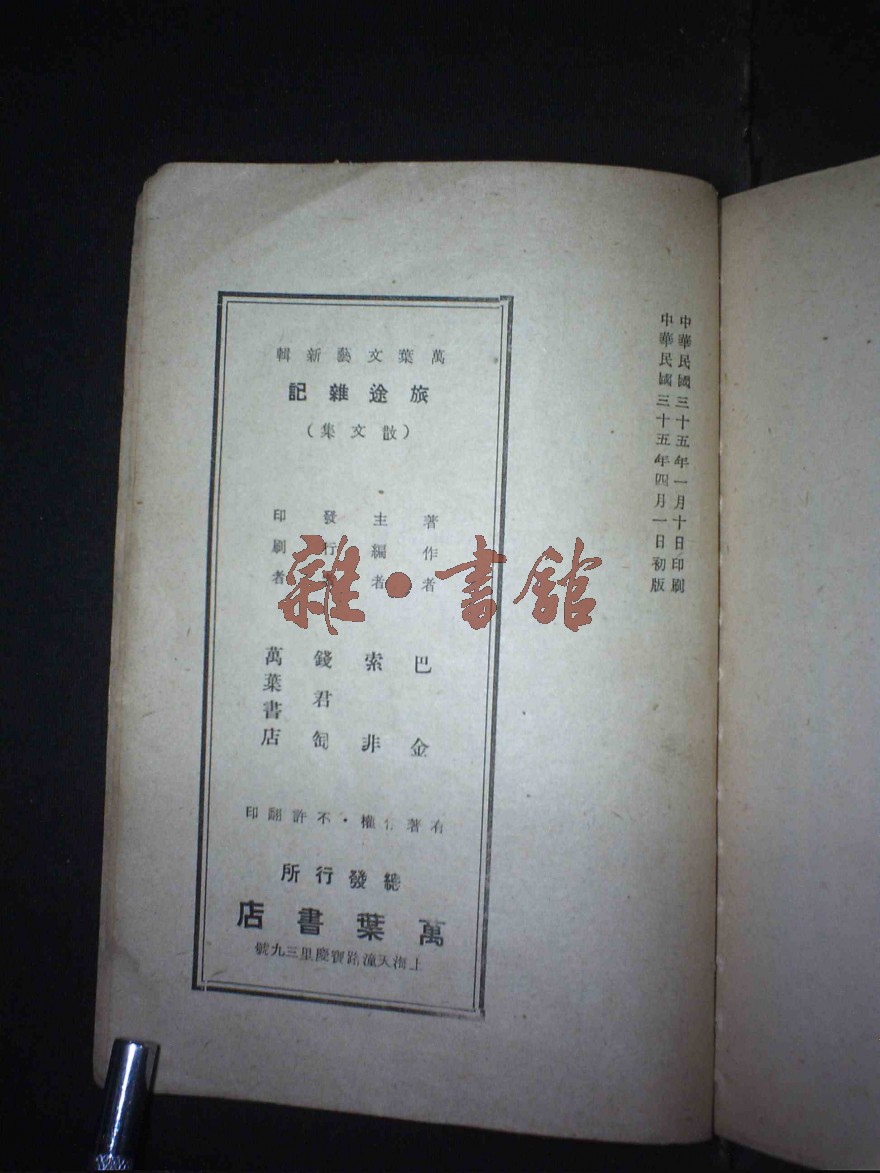 中華民國三十五年一月十日印刷
中華民國三十五年四月一日初版
萬葉文藝新輯
旅途雜記
（散文集）
著作者 巴金
主編者 索非
發行者 錢君匋
印刷者 萬葉書店
有著作權・不許翻印
總發行所
萬葉書店
上海天潼路寶慶里三九號
雜・書館